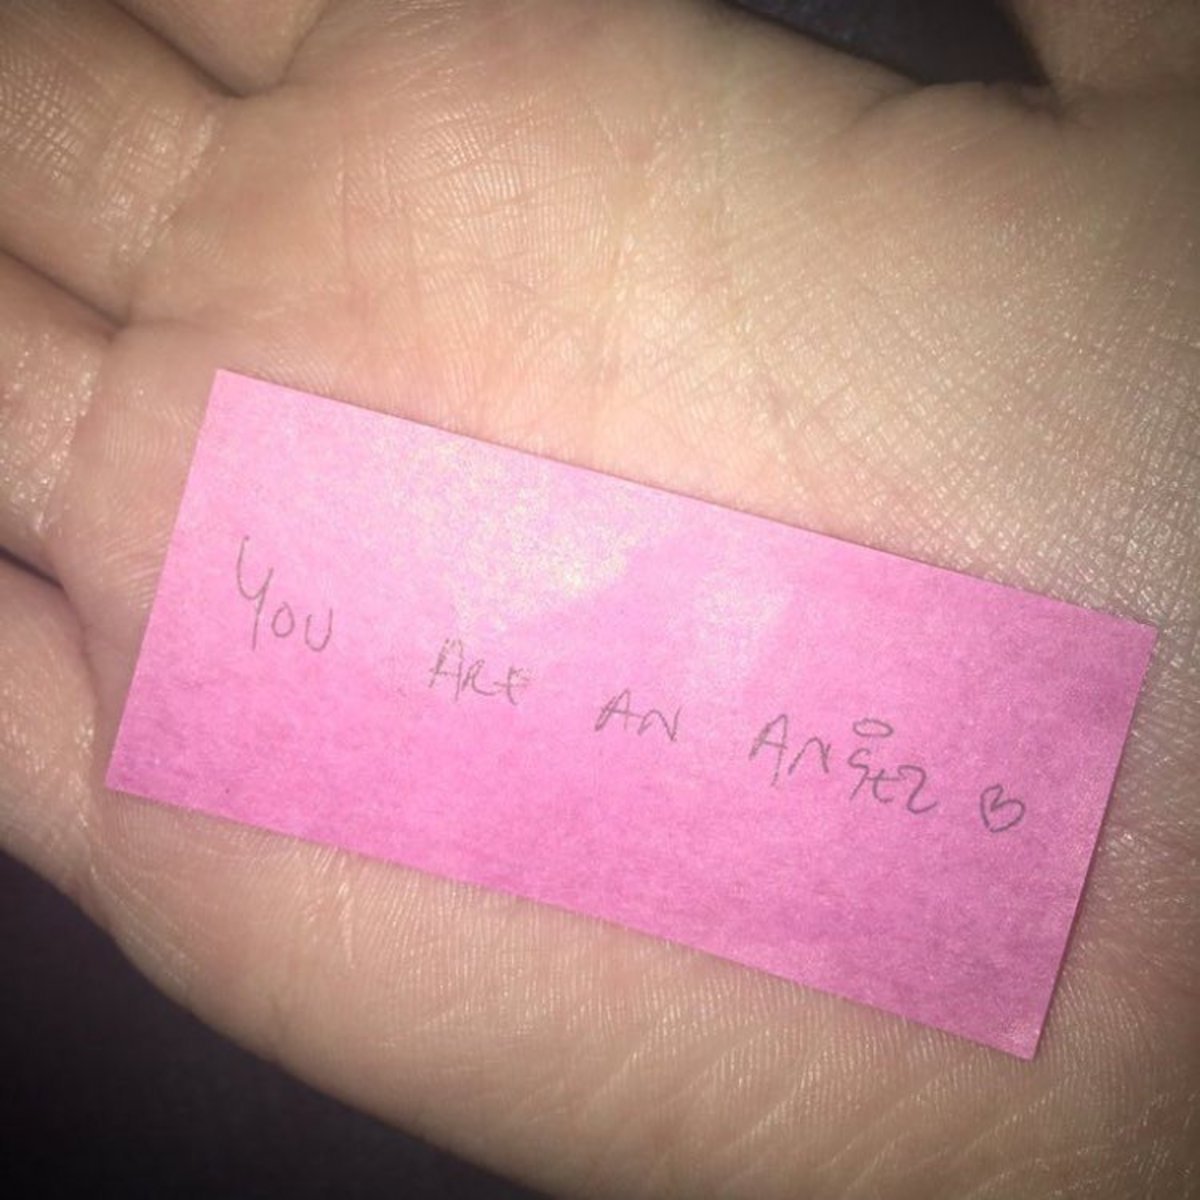 You ARE AN ANGEL ♡